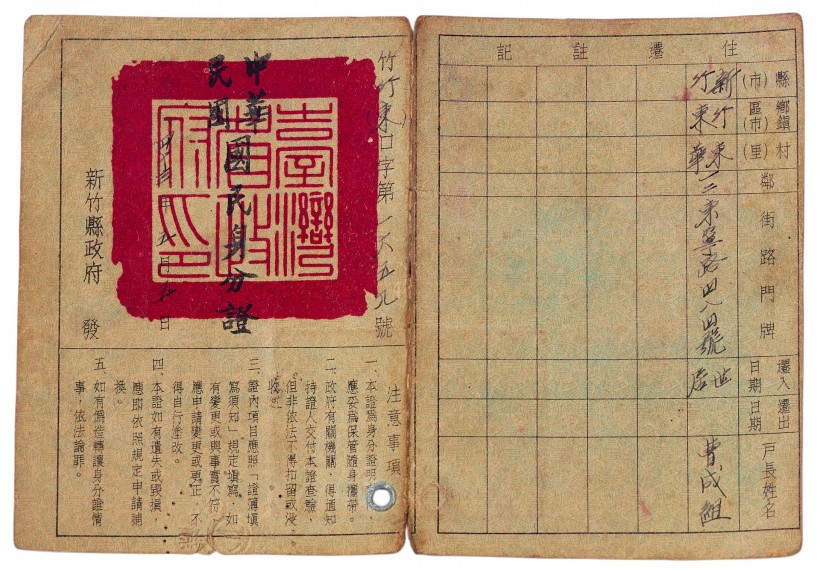 竹竹(東)口字第一六五九號
中華
民國
國民身分證
年五月五日
新竹縣政府 發
臺灣
省政
府印
注意事項
一、本證為身分證明
應妥為保管隨身攜帶。
二、政府有關機關,得通知
持證人交付本證查驗,
但非依法不得扣留或沒
收。
三、證內項目應照「證簿填
寫須知」規定填寫,如
有變更或與事實不符
應申請變更或更正,不
得自行塗改。
四、本證如有遺失或毀損,
應即依照規定申請補
換。
五、如有偽造轉讓身分證情
事,依法論罪。
住遷註記
縣(市)
鄉鎮區(市)
村(里)
鄰
街路門牌
遷入日期
遷出日期
戶長姓名
新竹
竹東
東華
一二
東寧路四八四號
世居
曹成組